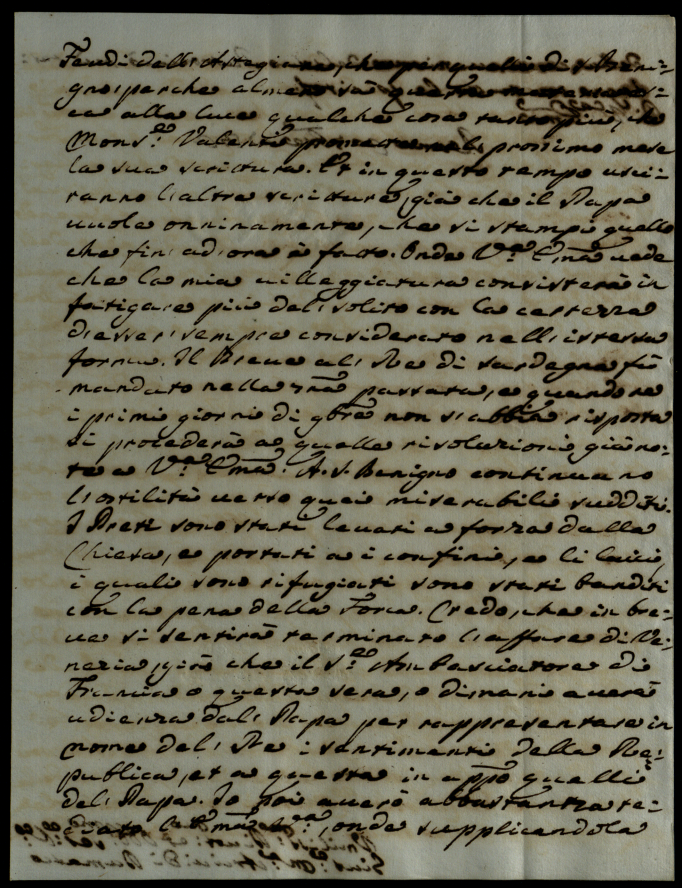 Feudi dell'Astegiana, che per quelli di S. Beni-
gno; perche almeno
ca alla luce qualche cosa
Mons.re Valenti promette nel prossimo mese
la sua scrittura. Et in questo tempo usci-
ranno l'altre scritture, già che il Papa
vuole onninamente, che si stampi quello
che fin' ad' ora è fatto. Onde V.ra Em.za vede
che la mia villeggiatura consisterà in
fatigare più del' solito con la certezza
d'esser' sempre considerato nell'istessa
forma. Il Breve al' Rè di Sardegna fù
mandato nella passata, e quando ne
i primi giorni di 9bre non s'abbia risposta
si procederà a quelle risoluzioni già no-
te a V.ra Em.za. A S. Benigno continuano
l'ostilità verso quei miserabili sudditi.
I Preti sono stati levati a forza dalla
Chiesa, e portati a i confini, e li laici,
i quali sono rifugiati sono stati banditi
con la pena della Forca. Credo, che in bre-
ve si sentirà terminato l'affare di Ve-
nezia, già che il S.re Ambasciatore di
Francia o questa sera, o dimani averà
udienza dal' Papa per rappresentare in
nome del' Rè i sentimenti della Re-
publica, et a questa in app.o quelli
del' Papa. Io poi averò abbastanza te-
diato l'Em.za V.ra, onde supplicandola